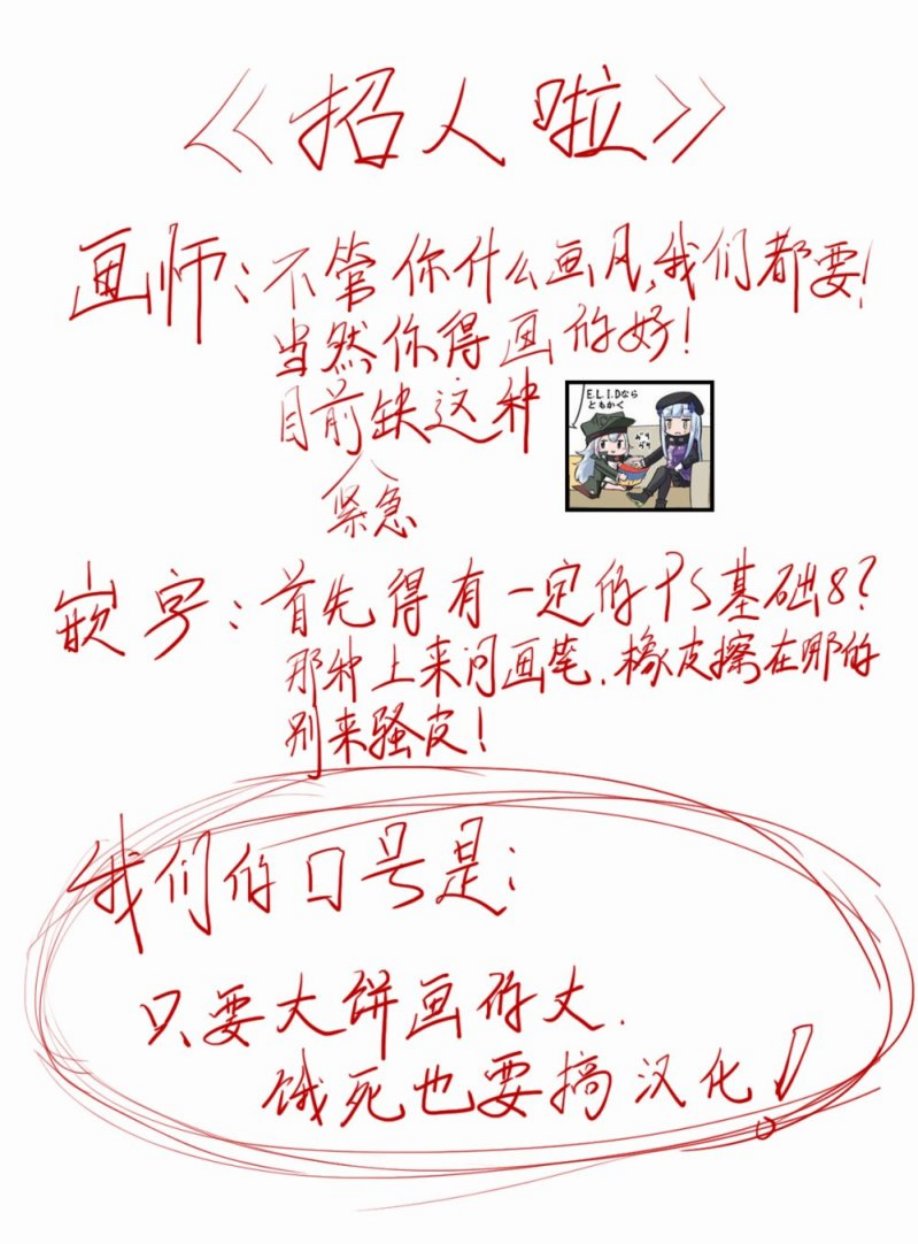 《招人啦》
画师：不管你什么画风，我们都要！
当然你得画的好！
目前缺这种
E.L.I.Dなら
ともかく
紧急
嵌字：首先得有一定的PS基础8？
那种上来问画笔.橡皮擦在哪的
别来骚皮！
我们的口号是：
只要大饼画的大.
饿死也要搞汉化！